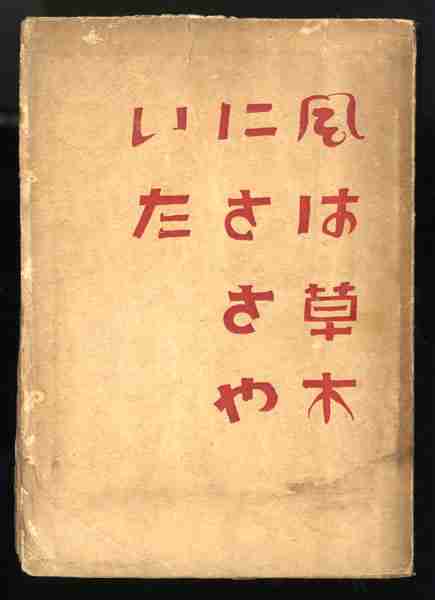 風は草木
にささや
いた